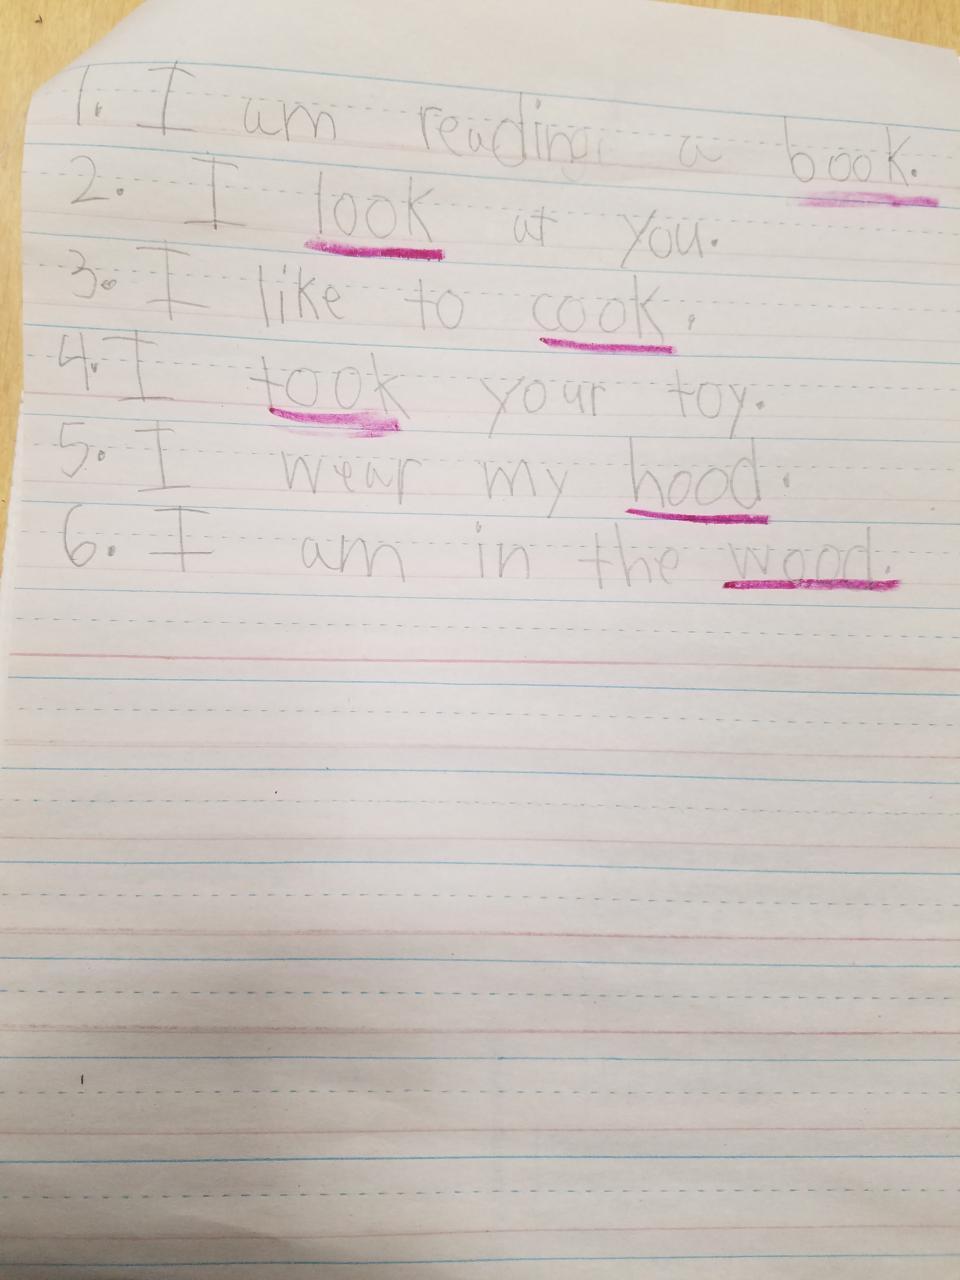 1. I am reading a book.
2. I look at you.
3. I like to cook.
4. I took your toy.
5. I wear my hood.
6. I am in the wood.